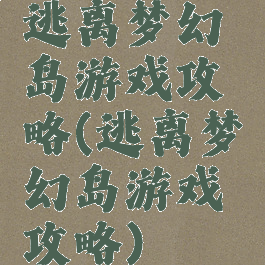 逃离梦幻
岛游戏攻
略(逃离梦
幻岛游戏
攻略)